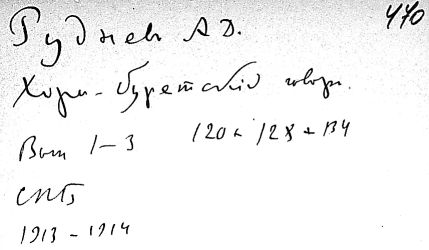 470
Руднев АД.
Хори-бурятскій говор.
Вып 1-3 120 + 128 + 134
СПБ
1913 - 1914